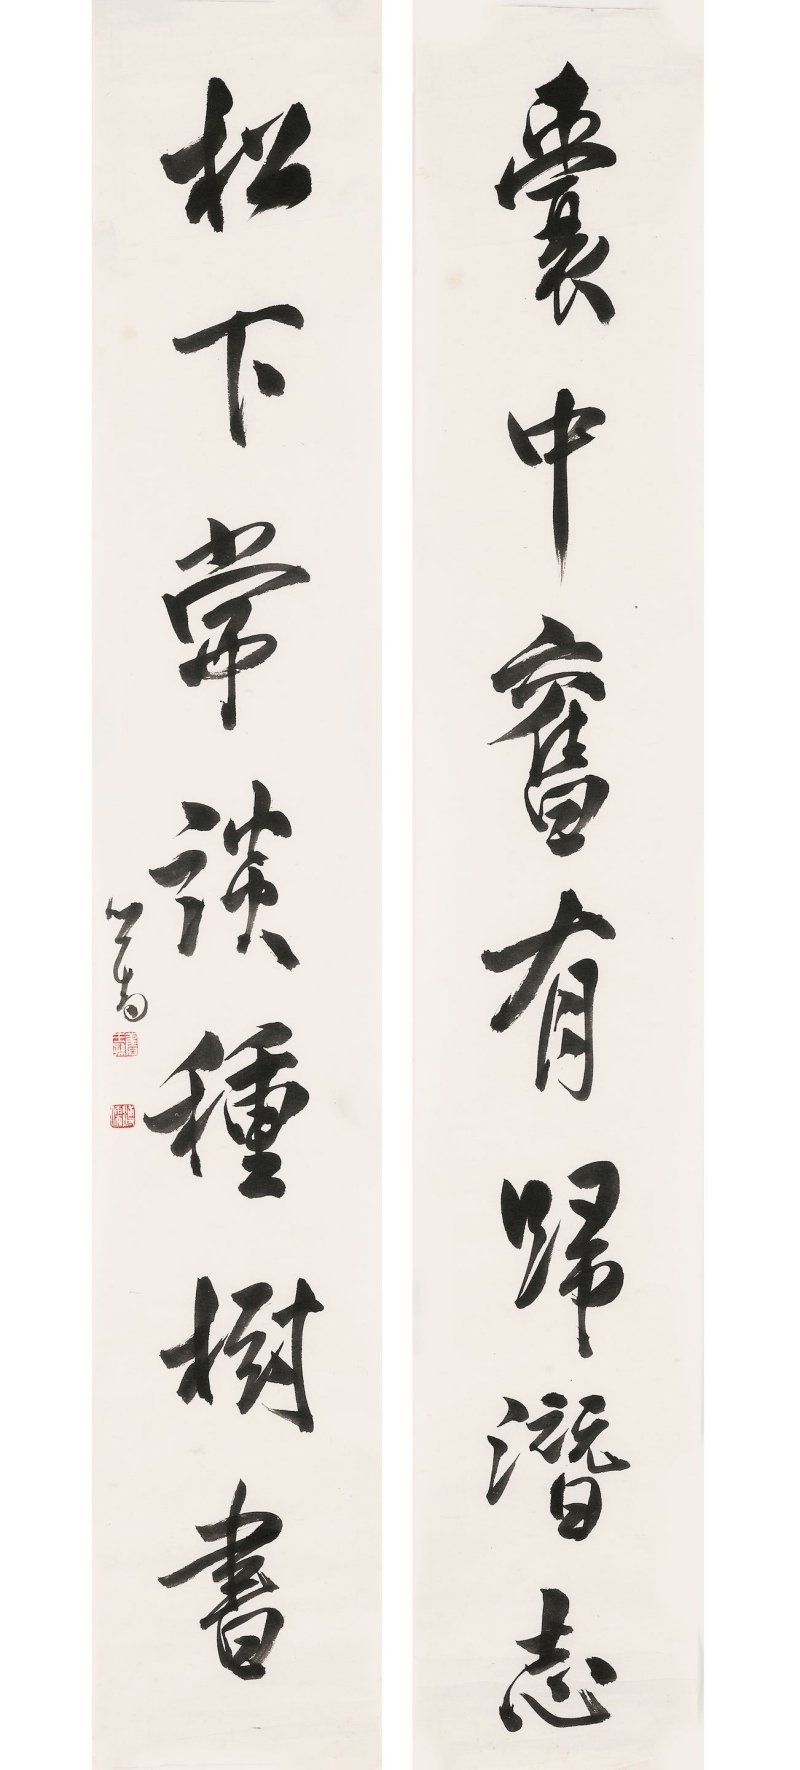 囊中舊有歸潛志
松下常談種樹書
心畬